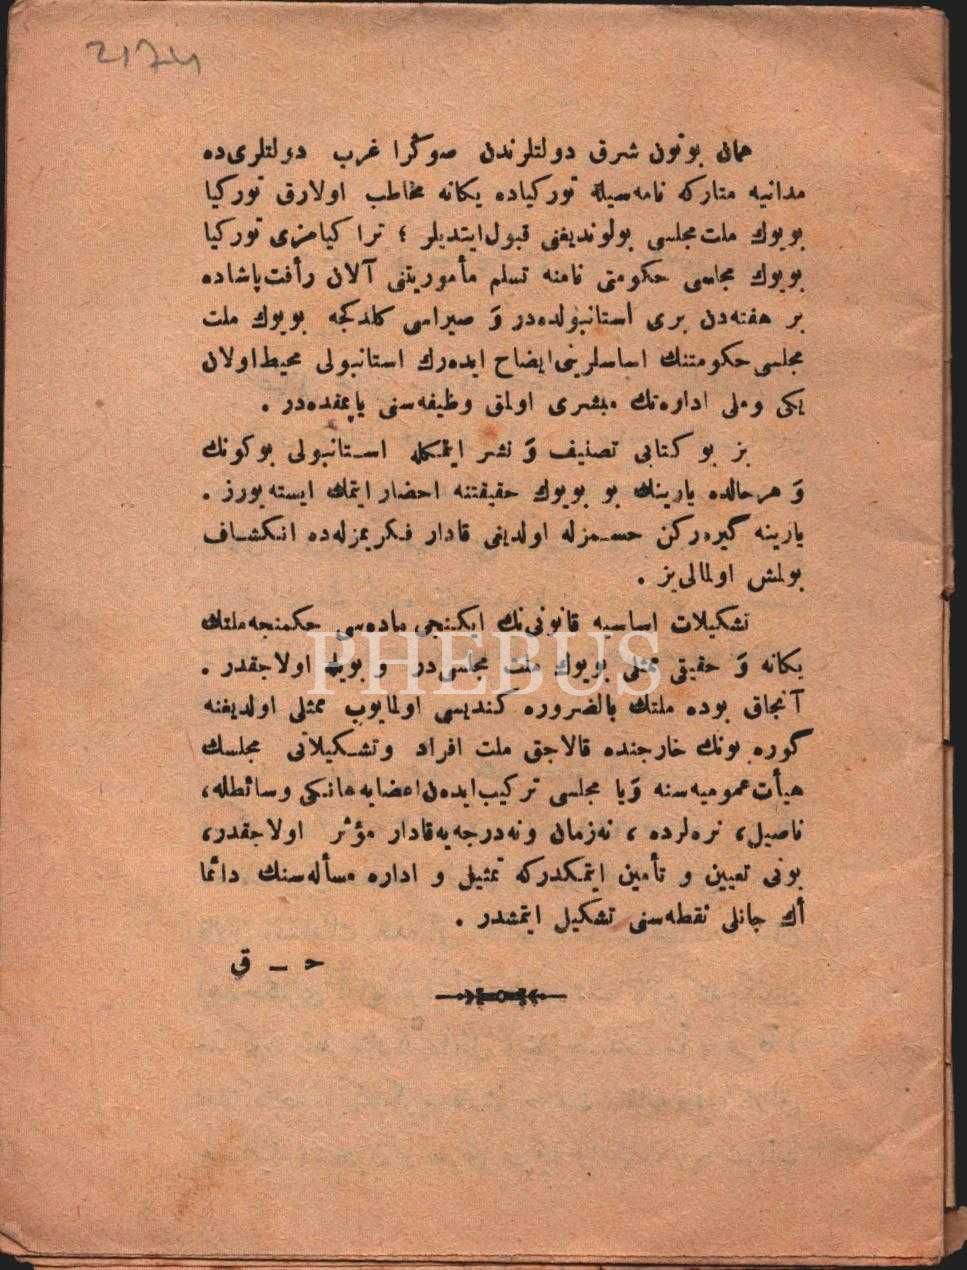 2174
همان بوتون شرق دولتلرندن صوڭرا غرب دولتلری‌ده
مدانیه متارکه نامه‌سیله تورکیاده یکانه مخاطب اولارق تورکیا
بویوك ملت مجلسی بولوندیغنی قبول ایتدیلر ؛ تراکیامزی تورکیا
بویوك مجلسی حکومتی نامنه تسلم مأموریتنی آلان رأفت پاشاده
بر هفته‌دن بری استانبولده‌در وَ صیراسی کلدکجه بویوك ملت
مجلسی حکومتنك اساسلرینی ایضاح ایده‌رك استانبولی محیط اولان
یکی وملی اداره‌نك مبشری اولمق وظیفه‌سنی یاپمقده‌در .
بز بو کتابی تصنیف وَ نشر ایتمکله استانبولی بوکونك
وَ هرحالده یارینك بو بویوك حقیقتنه احضار ایتمك ایسته‌یورز .
یارینه گیره‌رکن حسمزله اولدیغی قادار فکریمزله‌ده انکشاف
بولمش اولمالی‌یز .
تشکیلات اساسیه قانونی‌نك ایکنجی ماده‌سی حکمنجه ملتك
یکانه وَ حقیقی ممثلی بویوك ملت مجلسی‌در و بویله اولاجقدر .
آنجاق بوده ملتك بالضروره کندیسی اولمایوب ممثلی اولدیغنه
گوره بونك خارجنده قالاجق ملت افراد وتشکیلاتی مجلسك
هیأت عمومیه‌سنه وَیا مجلسی ترکیب ایده‌ن اعضایه هانکی وسائطله،
ناصیل، نره‌لرده ، نه‌زمان ونه‌درجه‌یه‌قادار مؤثر اولاجقدر،
بونی تعیین و تأمین ایتمکدرکه تمثیل و اداره مسأله‌سنك دائما
أك جانلی نقطه‌سنی تشکیل ایتمشدر .
ح – قی
PHEBUS